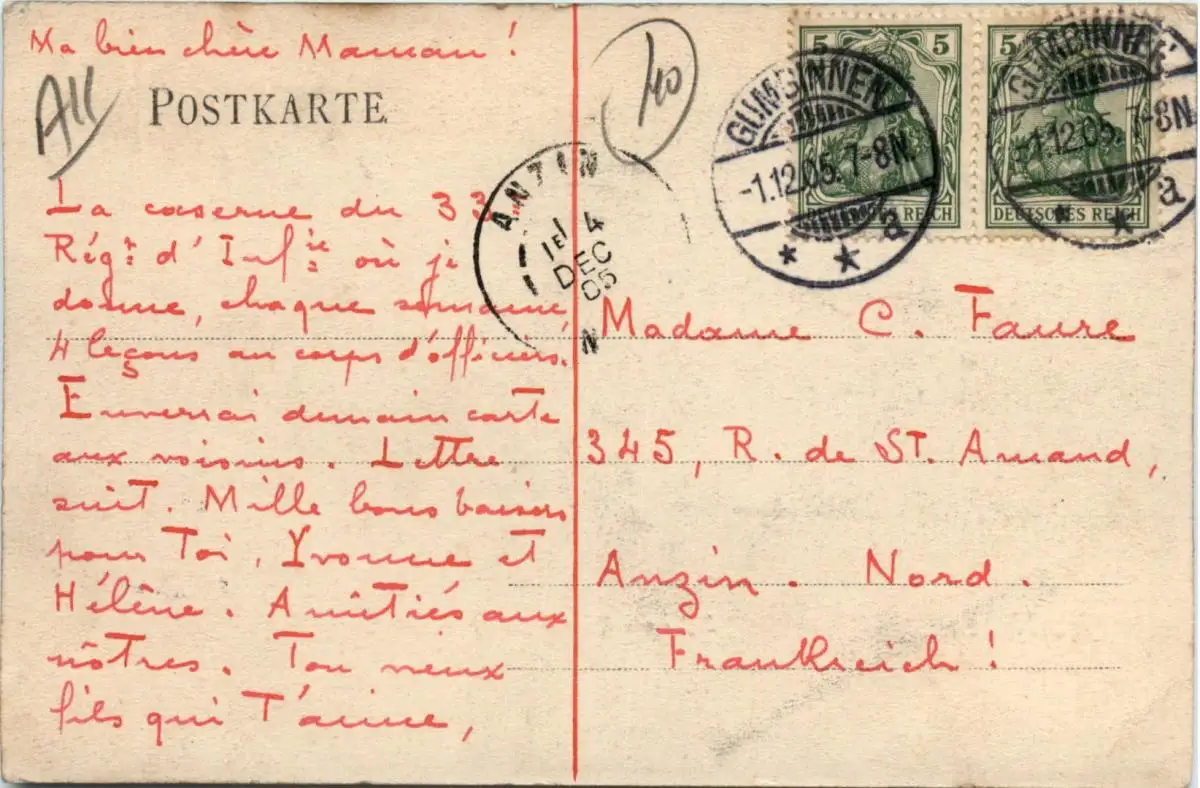 Ma bien chère Maman !
All
POSTKARTE
La caserne du 33me
Régt d'Infie où je
donne, chaque semaine,
4 leçons au corps d'officiers.
Enverrai demain carte
aux voisins. Lettre
suit. Mille bons baisers
pour Toi, Yvonne et
Hélène. Amitiés aux
nôtres. Ton vieux
fils qui T'aime,
40
5 5
5
DEUTSCHES REICH
DEUTSCHES REICH
GUMBINNEN
-1.12.05. 7-8N.
a
GUMBINNEN
-1.12.05. 7-8N.
a
ANZIN
1E
4
DEC
05
N
Madame C. Faure
345, R. de St. Amand,
Anzin. Nord.
Frankreich !